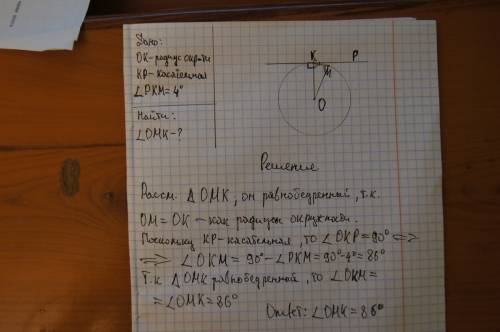 Дано:
OK-радиус окр-ти
KP-касательная
∠PKM=4°
Найти:
∠OMK-?
K P
M
O
Решение
Рассм. △OMK, он равнобедренный, т.к.
OM=OK - как радиусы окружности.
Поскольку KP-касательная, то ∠OKP=90° <=>
=> ∠OKM = 90°-∠PKM=90°-4°=86°
Т.к △OMK равнобедренный, то ∠OKM=
=∠OMK=86°
Ответ: ∠OMK=86°